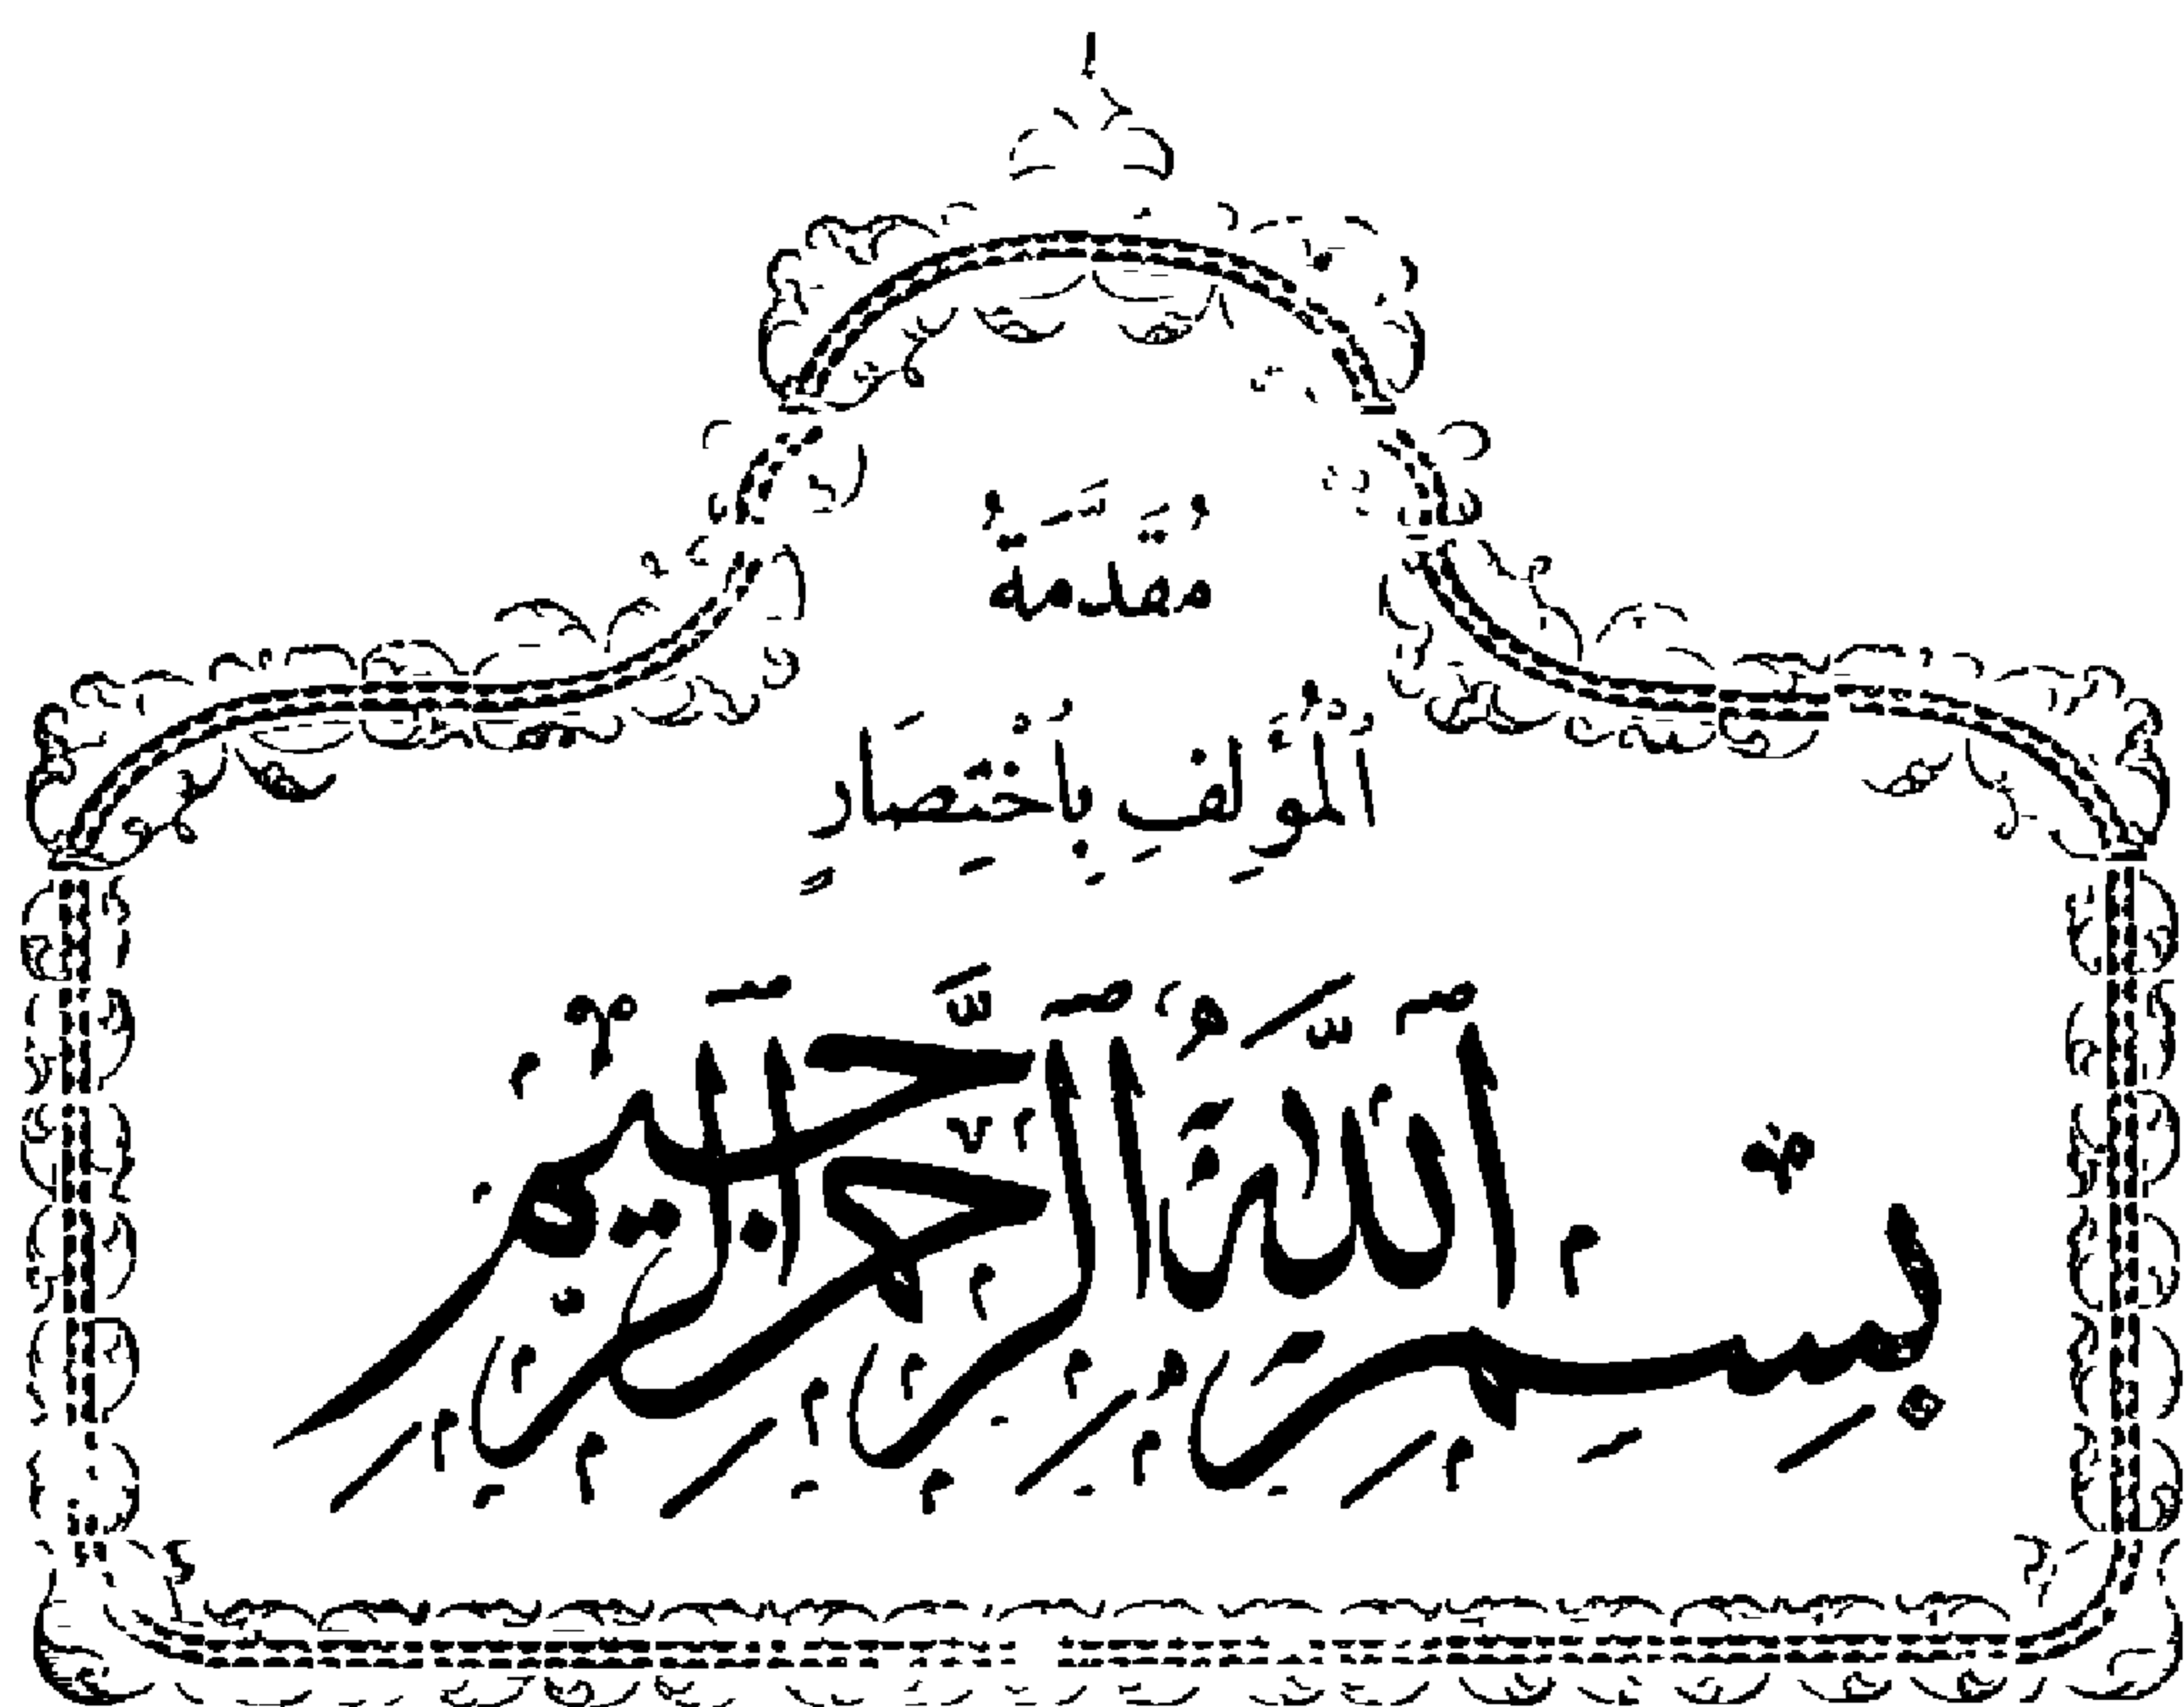 مُقَدَّمَةُ
اَلْمُؤَلِّفِ بِاخْتِصَارٍ
بِسْمِ اللهِ الرَّحْمٰنِ الرَّحِيْمِ